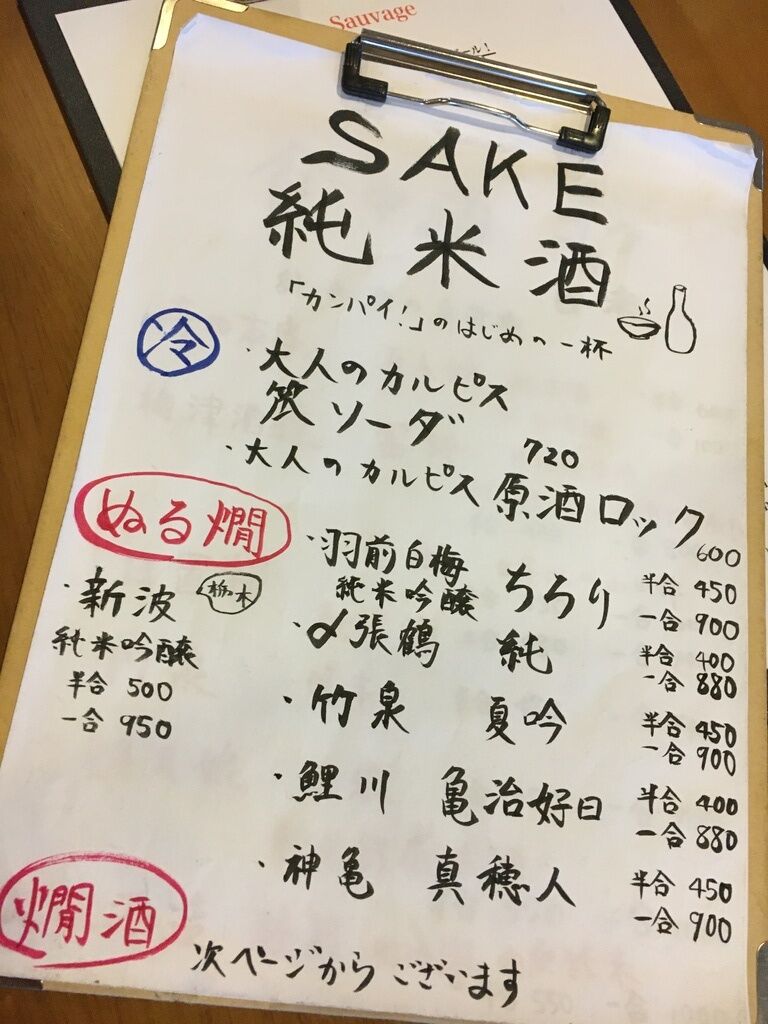 Sauvage
SAKE
純米酒
「カンパイ！」のはじめの一杯
冷
・大人のカルピス
ソーダ 720
・大人のカルピス 原酒ロック 600
ぬる燗
・羽前白梅 ちろり 半合 450
純米吟醸 一合 900
・〆張鶴 純 半合 400
一合 880
・竹泉 夏吟 半合 450
一合 900
・鯉川 亀治好日 半合 400
一合 880
・神亀 真穂人 半合 450
一合 900
・新波 栃木
純米吟醸
半合 500
一合 950
燗酒
次ページからございます